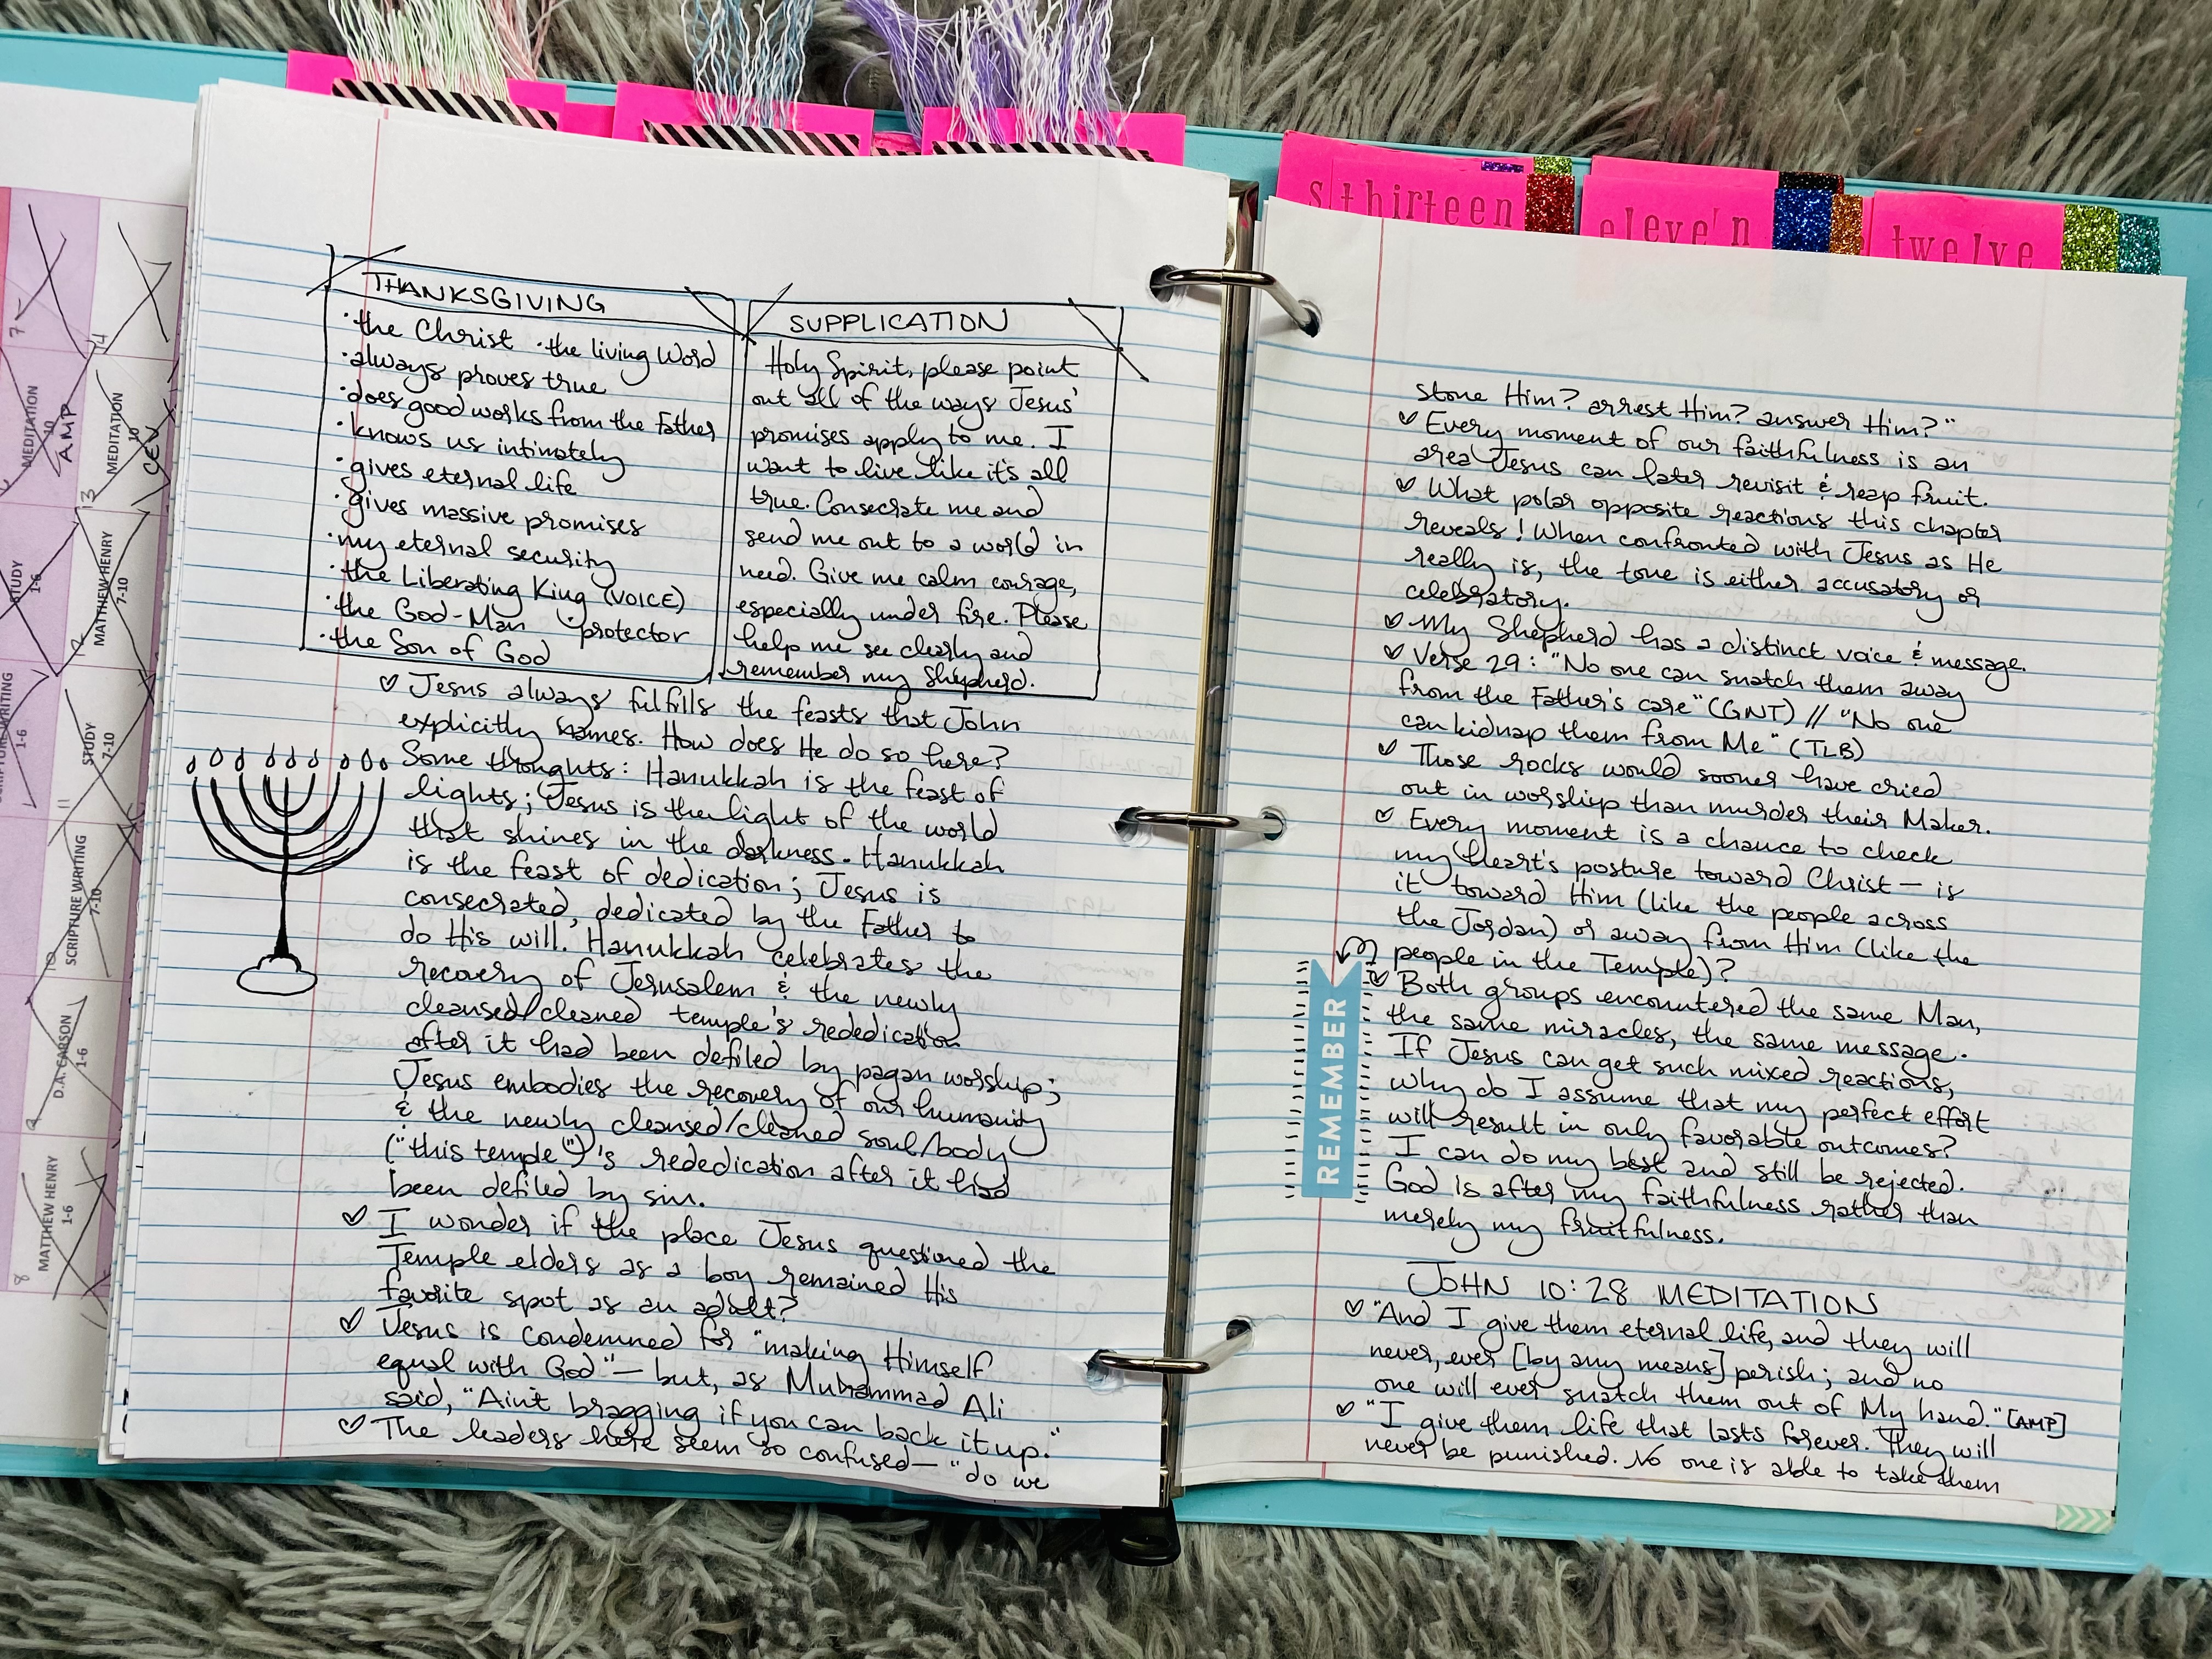 7
14
MEDITATION
10
AMP
MEDITATION
10
CEV
6
13
STUDY
1-6
MATTHEW HENRY
7-10
12
SCRIPTURE WRITING
1-6
STUDY
7-10
11
SCRIPTURE WRITING
7-10
10
D.A. CARSON
1-6
9
MATTHEW HENRY
1-6
8
THANKSGIVING
·the Christ ·the living Word
·always proves true
·does good works from the Father
·knows us intimately
·gives eternal life
·gives massive promises
·my eternal security
·the Liberating King (VOICE)
·the God-Man ·protector
·the Son of God
SUPPLICATION
Holy Spirit, please point
out all of the ways Jesus'
promises apply to me. I
want to live like it's all
true. Consecrate me and
send me out to a world in
need. Give me calm courage,
especially under fire. Please
help me see clearly and
remember my Shepherd.
♡ Jesus always fulfills the feasts that John
explicitly names. How does He do so here?
Some thoughts: Hanukkah is the feast of
lights; Jesus is the light of the world
that shines in the darkness. Hanukkah
is the feast of dedication; Jesus is
consecrated, dedicated by the Father to
do His will. Hanukkah celebrates the
recovery of Jerusalem & the newly
cleansed/cleaned temple's rededication
after it had been defiled by pagan worship;
Jesus embodies the recovery of our humanity
& the newly cleansed/cleaned soul/body
("this temple")'s rededication after it had
been defiled by sin.
♡ I wonder if the place Jesus questioned the
Temple elders as a boy remained His
favorite spot as an adult?
♡ Jesus is condemned for "making Himself
equal with God" — but, as Muhammad Ali
said, "Ain't bragging if you can back it up."
♡ The leaders here seem so confused — "do we
sthirteen
eleve'n
twelve
stone Him? arrest Him? answer Him?"
♡ Every moment of our faithfulness is an
area Jesus can later revisit & reap fruit.
♡ What polar opposite reactions this chapter
reveals! When confronted with Jesus as He
really is, the tone is either accusatory or
celebratory.
♡ My Shepherd has a distinct voice & message.
♡ Verse 29: "No one can snatch them away
from the Father's care" (GNT) // "No one
can kidnap them from Me" (TLB)
♡ Those rocks would sooner have cried
out in worship than murder their Maker.
♡ Every moment is a chance to check
my heart's posture toward Christ — is
it toward Him (like the people across
the Jordan) or away from Him (like the
people in the Temple)?
♡ Both groups encountered the same Man,
the same miracles, the same message.
If Jesus can get such mixed reactions,
why do I assume that my perfect effort
will result in only favorable outcomes?
I can do my best and still be rejected.
God is after my faithfulness rather than
merely my fruitfulness.
REMEMBER
JOHN 10:28 MEDITATION
♡ "And I give them eternal life, and they will
never, ever [by any means] perish; and no
one will ever snatch them out of My hand." [AMP]
♡ "I give them life that lasts forever. They will
never be punished. No one is able to take them